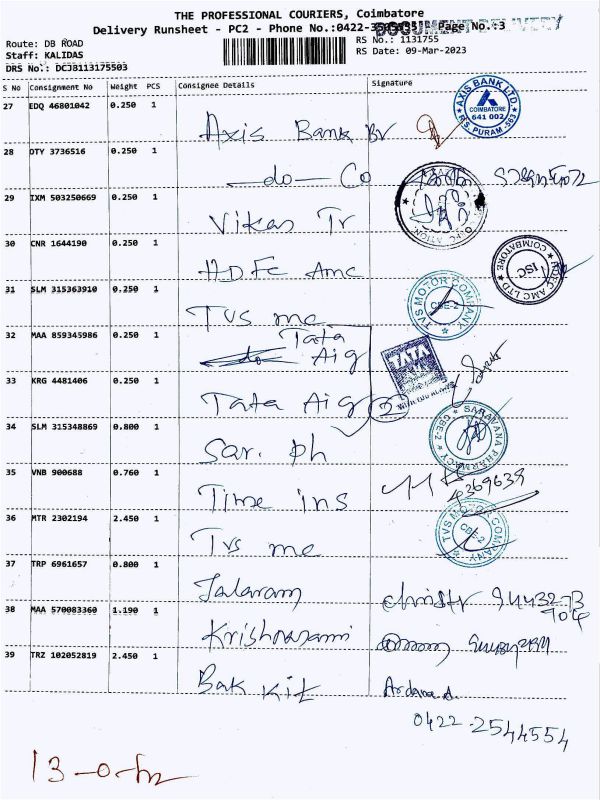 THE PROFESSIONAL COURIERS, Coimbatore
Delivery Runsheet - PC2 - Phone No.:0422- Page No.:3
DOCUMENT DELIVERY
Route: DB ROAD
RS No.: 1131755
Staff: KALIDAS
RS Date: 09-Mar-2023
DRS No.: DCJB113175503
S No Consignment No Weight PCS Consignee Details Signature
27 EDQ 46801042 0.250 1
Axis Bank Br
AXIS BANK LTD.
COIMBATORE
641 002
R.S. PURAM -563
28 OTY 3736516 0.250 1
-do- Co
29 IXM 503250669 0.250 1
Vikas Tr
30 CNR 1644190 0.250 1
HDFC Amc
HDFC AMC LTD
ISC
COIMBATORE
31 SLM 315363910 0.250 1
TVS mc
TVS MOTOR COMPANY
CBE-2
32 MAA 859345986 0.250 1
Tata
do Aig
TATA
33 KRG 4481406 0.250 1
Tata Aig 2
34 SLM 315348869 0.800 1
Sar. ph
SARAVANA PHARMACY
CBE-2
35 VNB 900688 0.760 1
Time ins
4369639
36 MTR 2302194 2.450 1
Tvs mc
TVS MOTOR COMPANY
CBE-2
37 TRP 6961657 0.800 1
Jalaram
38 MAA 570083360 1.190 1
Krishnasami
39 TRZ 102052819 2.450 1
Bak Kit
0422-2544554